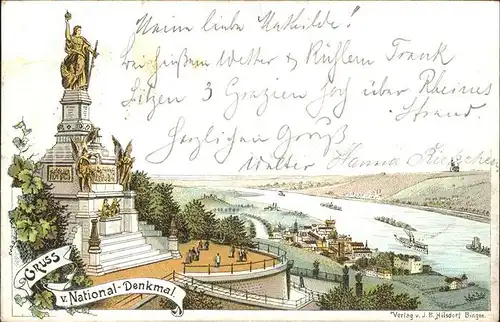 Meine liebe Mathilde!
bei heißem Wetter & kühlem Trank
Sitzen 3 Grazien hoch über Rheines
Strand.
Herzlichen Gruß
Walter Hanna
Gruss
v. National-Denkmal.
Verlag v. J. B. Hilsdorf Bingen.